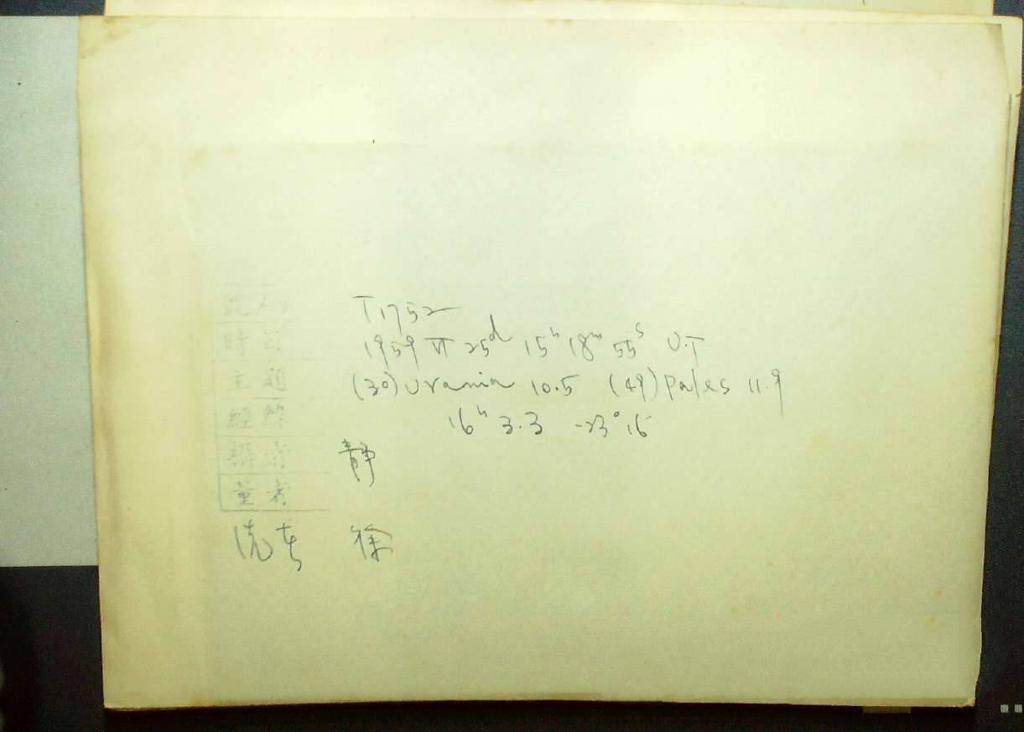 號碼 T1752
時日 1959 VI 25d 15h 18m 55s U.T
主題 (30) Urania 10.5 (49) Pales 11.9
16h 3.3 -23° 16
靜
量者
洗者 徐